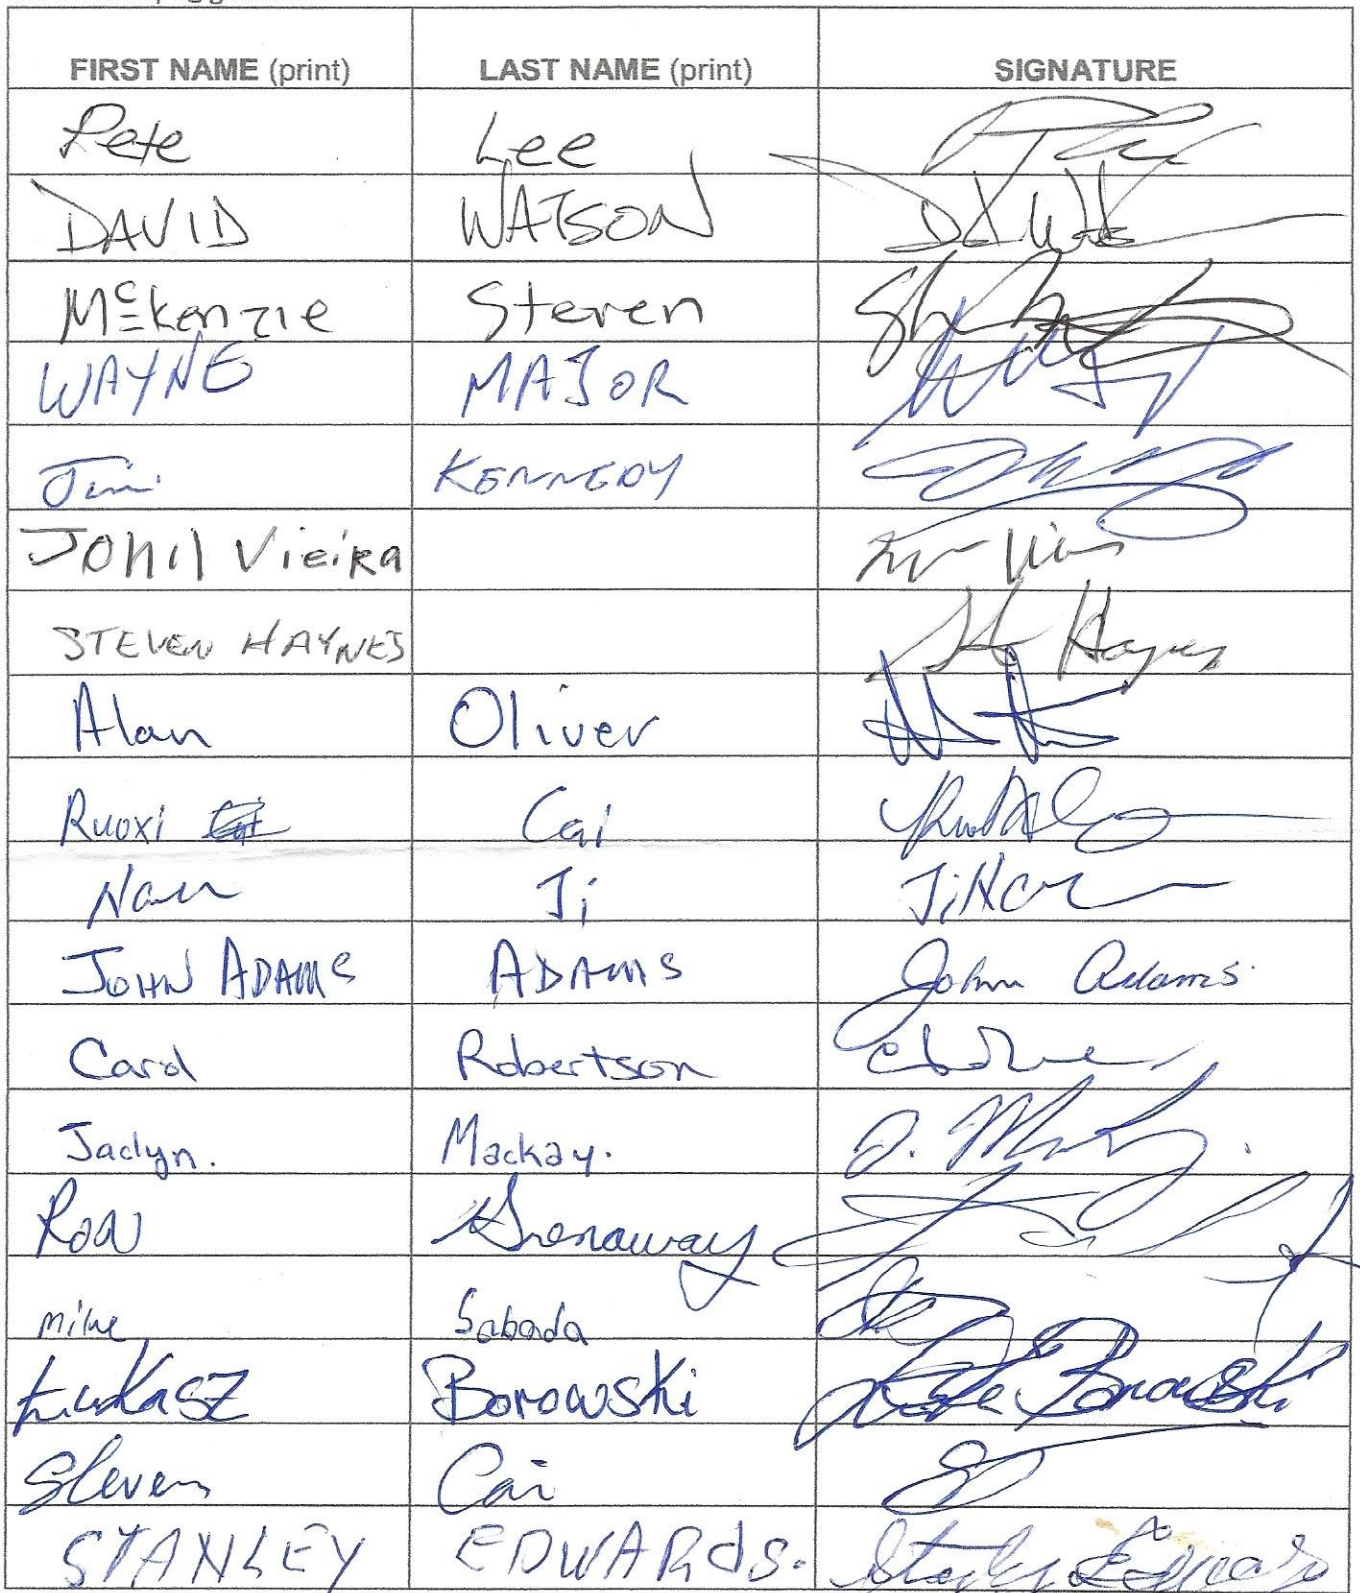 FIRST NAME (print) LAST NAME (print) SIGNATURE
Pete Lee
DAVID WATSON
McKenzie Steven
WAYNE MAJOR
Jim KENNEDY
JOHN Vieira
STEVEN HAYNES
Alan Oliver
Ruoxi Cai
Nan Ji JiNan
JOHN ADAMS ADAMS John Adams
Carol Robertson
Jaclyn. Mackay. J. Mackay.
Ron Grenaway
mike Sabada
Łukasz Borowski Borowski
Steven Cai
STANLEY EDWARdS. Stanley Edwards